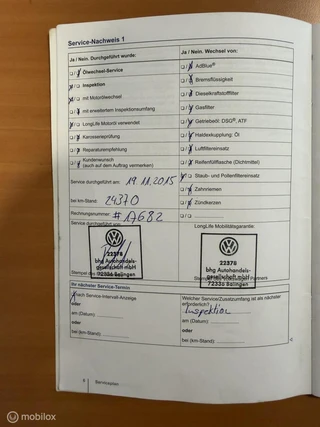 Service-Nachweis 1
Ja / Nein. Durchgeführt wurde:
Ja / Nein. Wechsel von:
Ölwechsel-Service
AdBlue®
Inspektion
Bremsflüssigkeit
mit Motorölwechsel
Dieselkraftstofffilter
mit erweitertem Inspektionsumfang
Gasfilter
LongLife Motoröl verwendet
Getriebeöl: DSG®, ATF
Karosserieprüfung
Haldexkupplung: Öl
Reparaturempfehlung
Luftfiltereinsatz
Kundenwunsch
(auch auf dem Auftrag vermerken)
Reifenfüllflasche (Dichtmittel)
Staub- und Pollenfiltereinsatz
Service durchgeführt am: 19.11.2015
Zahnriemen
bei km-Stand: 24370
Zündkerzen
Rechnungsnummer: #17682
Service durchgeführt von:
LongLife Mobilitätsgarantie:
22378
bhg Autohandels-
gesellschaft mbH
72336 Balingen
22378
bhg Autohandels-
gesellschaft mbH
72336 Balingen
Stempel des
Partner
Ihr nächster Service-Termin
nach Service-Intervall-Anzeige
oder
am (Datum):
oder
bei (km-Stand):
Welcher Service/Zusatzumfang ist als nächster
erforderlich?
Inspektion
am (Datum):
oder
bei (km-Stand):
8
Serviceplan
mobilox